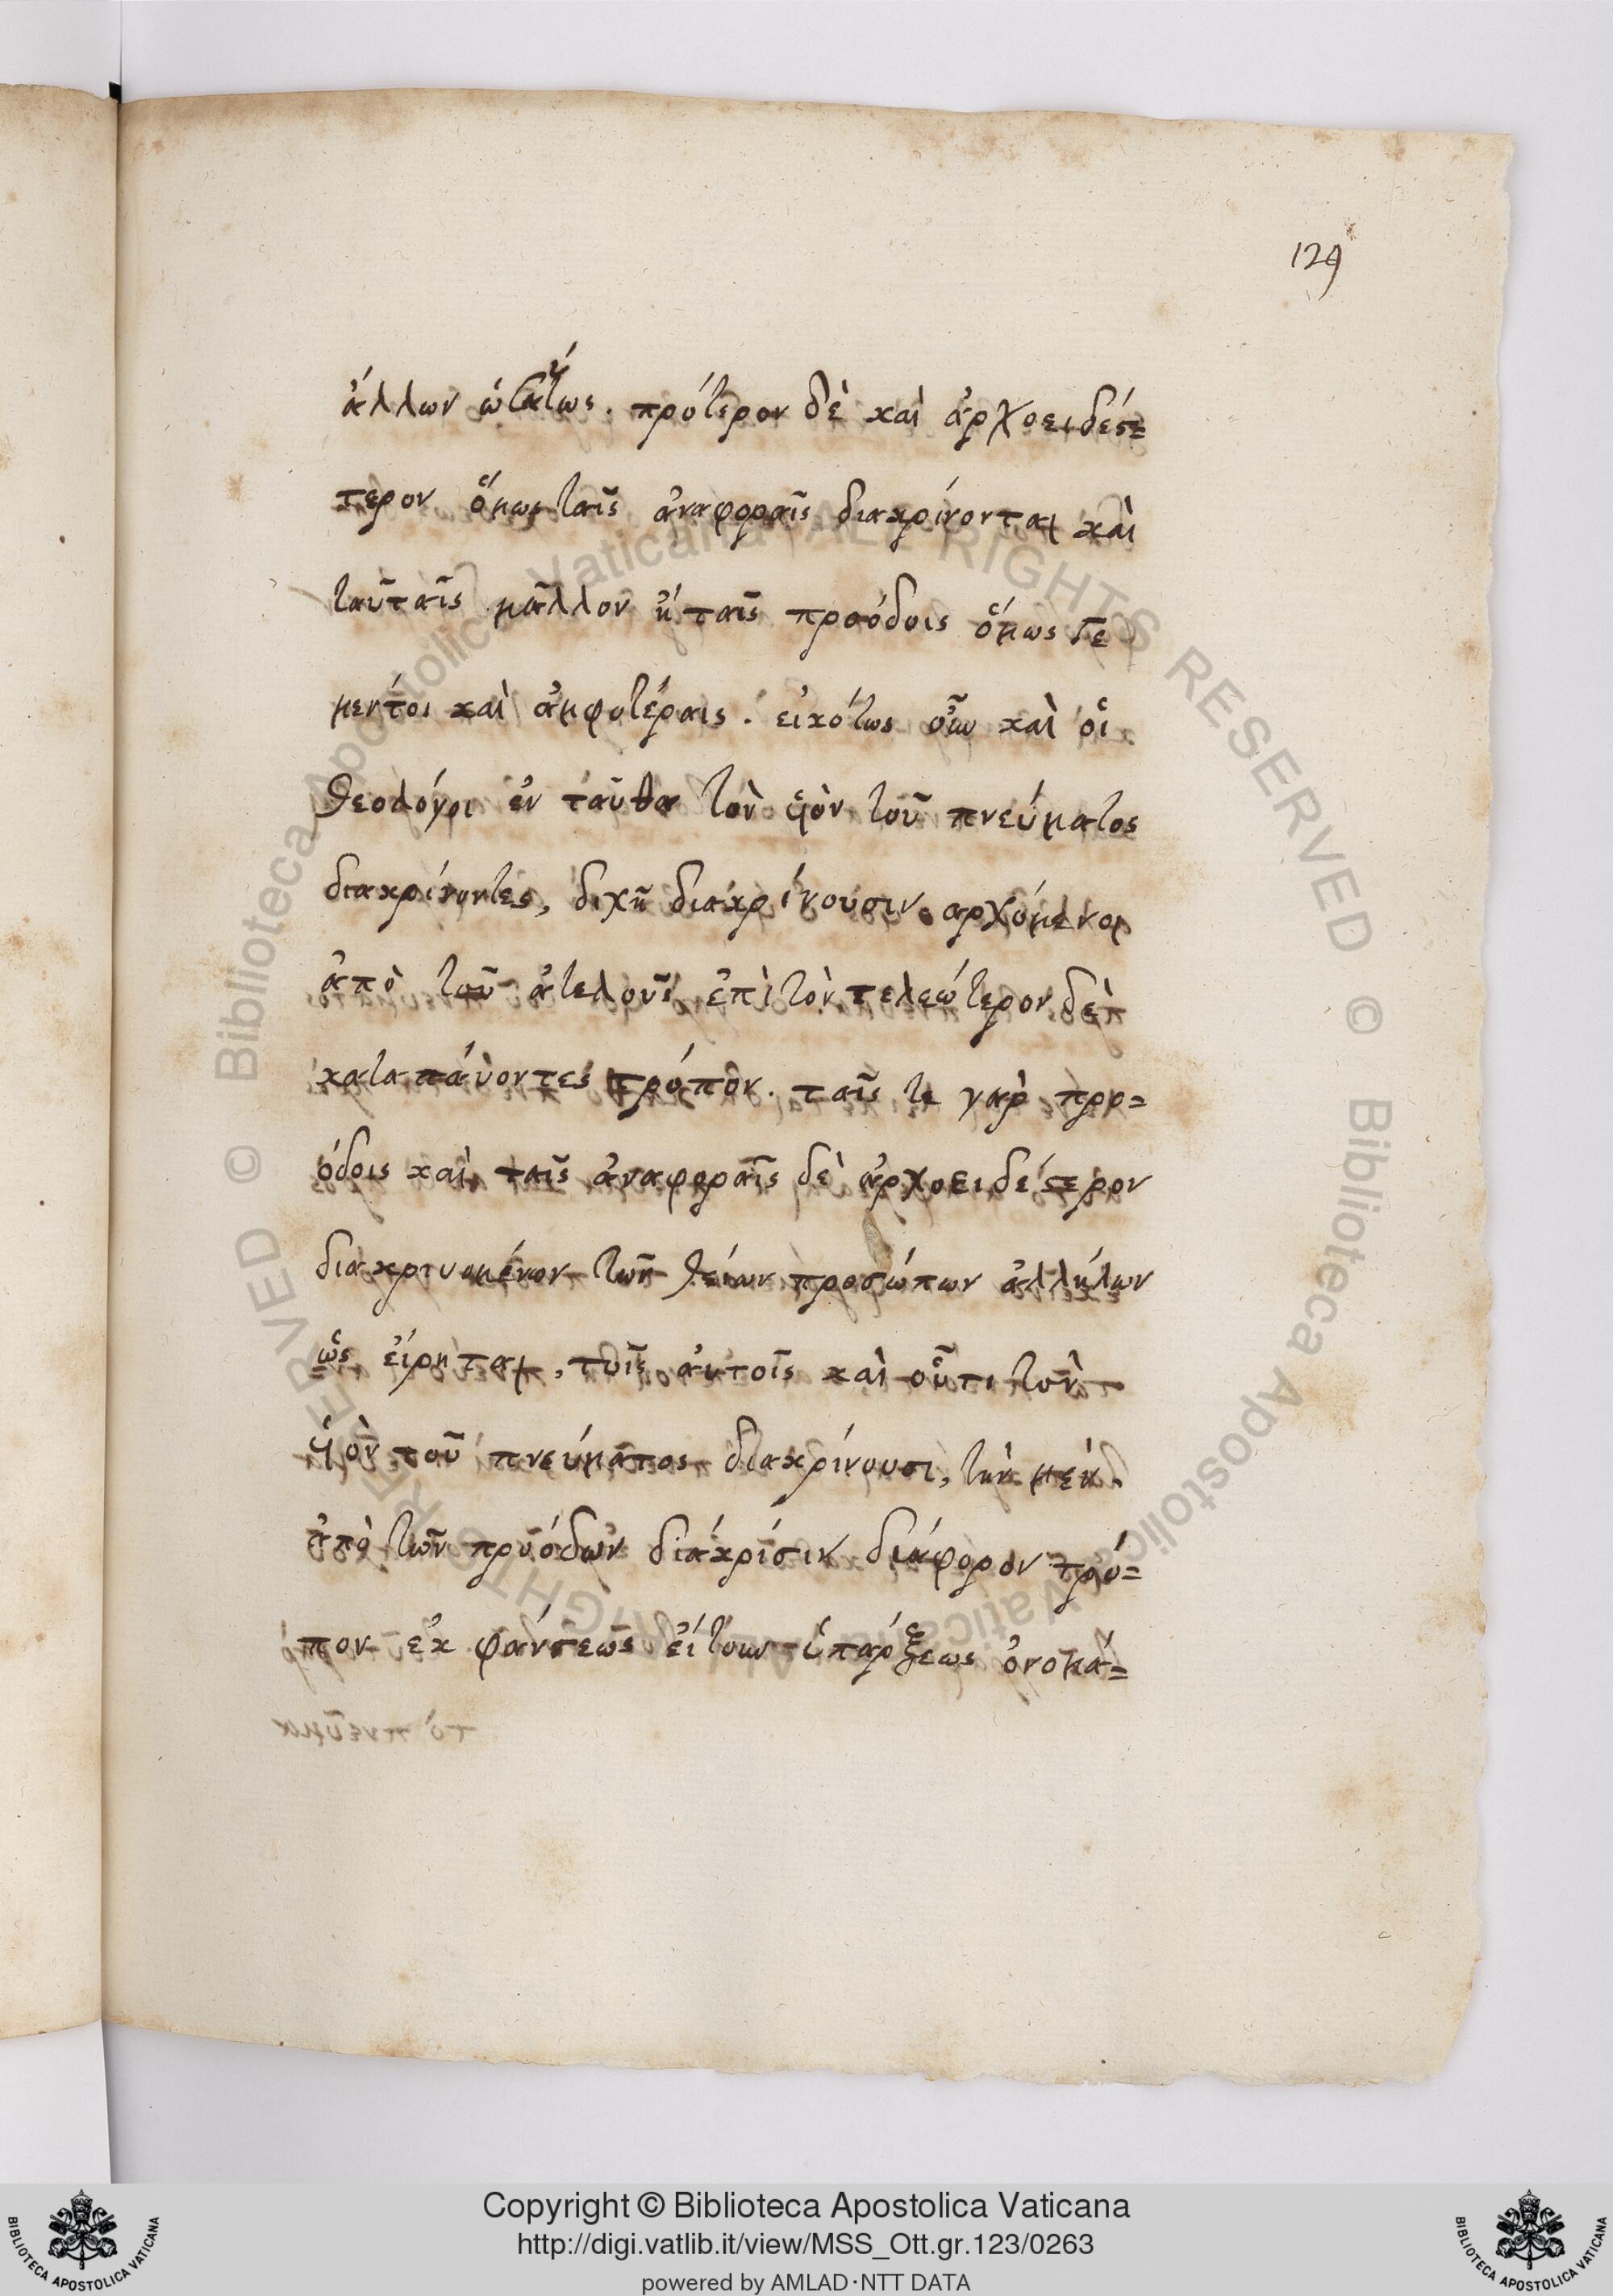 129
ἄλλων ὡσαύτως. πρότερον δὲ καὶ ἀρχοειδέσ=
τερον ὅμως ταῖς ἀναφοραῖς διακρίνονται καὶ
ταύταῖς μᾶλλον ἢ ταῖς προόδοις ὅμως γε
μεντοι καὶ ἀμφοτέραις. εἰκότως οὖν καὶ οἱ
θεολόγοι ἐν ταῦθα τὸν ὑὸν τοῦ πνεύματος
διακρίνοντες, διχῆ διακρίνουσιν. αρχόμενοι
ἀπὸ τοῦ ἀτελοῦς ἐπὶ τὸν τελεώτερον δὲ
καταπάυοντες τρόπον. ταῖς τε γαρ προ=
όδοις καὶ ταῖς ἀναφοραῖς δὲ ἀρχοειδέστερον
διακρινομένων τῶν θείων προσώπων ἀλλήλων
ὡς εἴρηται, τοῖς αὐτοῖς καὶ οὗτι τὸν
ὑὸν τοῦ πνεύματος διακρίνουσι, τὴν μὲν
ἀπὸ τῶν προόδων διάκρισιν διάφορον τρό=
πον ἐκ φάνσεως εἴτουν ὑπάρξεως ὀνομά=
Copyright © Biblioteca Apostolica Vaticana
http://digi.vatlib.it/view/MSS_Ott.gr.123/0263
powered by AMLAD·NTT DATA
BIBLIOTECA APOSTOLICA VATICANA
BIBLIOTECA APOSTOLICA VATICANA
© Biblioteca Apostolica Vaticana ALL RIGHTS RESERVED © Biblioteca Apostolica Vaticana ALL RIGHTS RESERVED